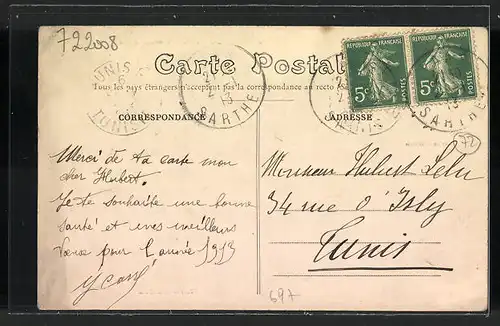 722008
Carte Postale
Tous les pays étrangers n'acceptent pas la correspondance au recto
CORRESPONDANCE
ADRESSE
RÉPUBLIQUE FRANÇAISE
5c
POSTES
RÉPUBLIQUE FRANÇAISE
5c
POSTES
TUNIS
6
TUNISIE
2
13
SARTHE
SARTHE
72
Merci de ta carte mon
cher Hubert.
Je te souhaite une bonne
santé et mes meilleurs
Vœux pour l'année 1913
Monsieur Hubert Lelu
34 rue d'Isly
Tunis
697